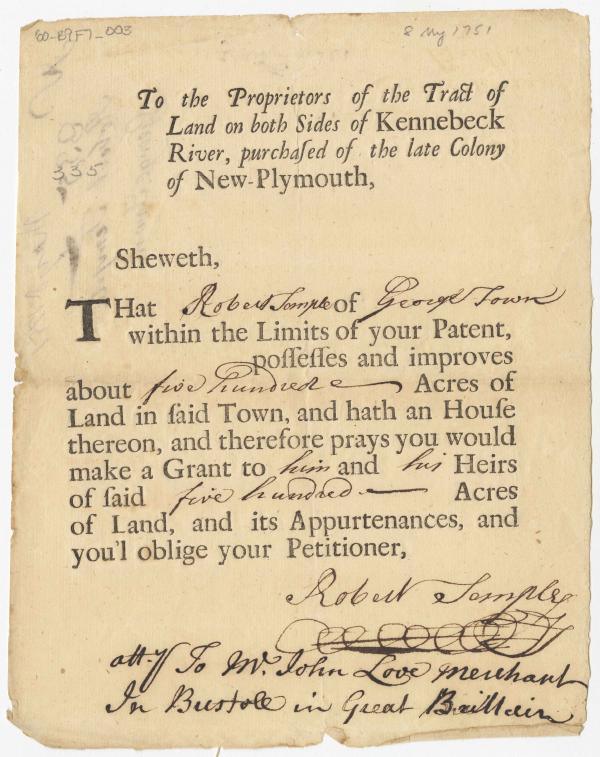 60-B9F7_003
8 My 1751
To the Proprietors of the Tract of
Land on both Sides of Kennebeck
River, purchaſed of the late Colony
of New-Plymouth,
335
Sheweth,
THat Robert Temple of George Town
within the Limits of your Patent,
poſſeſſes and improves
about five hundred Acres of
Land in ſaid Town, and hath an Houſe
thereon, and therefore prays you would
make a Grant to him and his Heirs
of ſaid five hundred Acres
of Land, and its Appurtenances, and
you'l oblige your Petitioner,
Robert Temple
att-y To Mr. John Love Merchant
In Bristole in Great Brittain